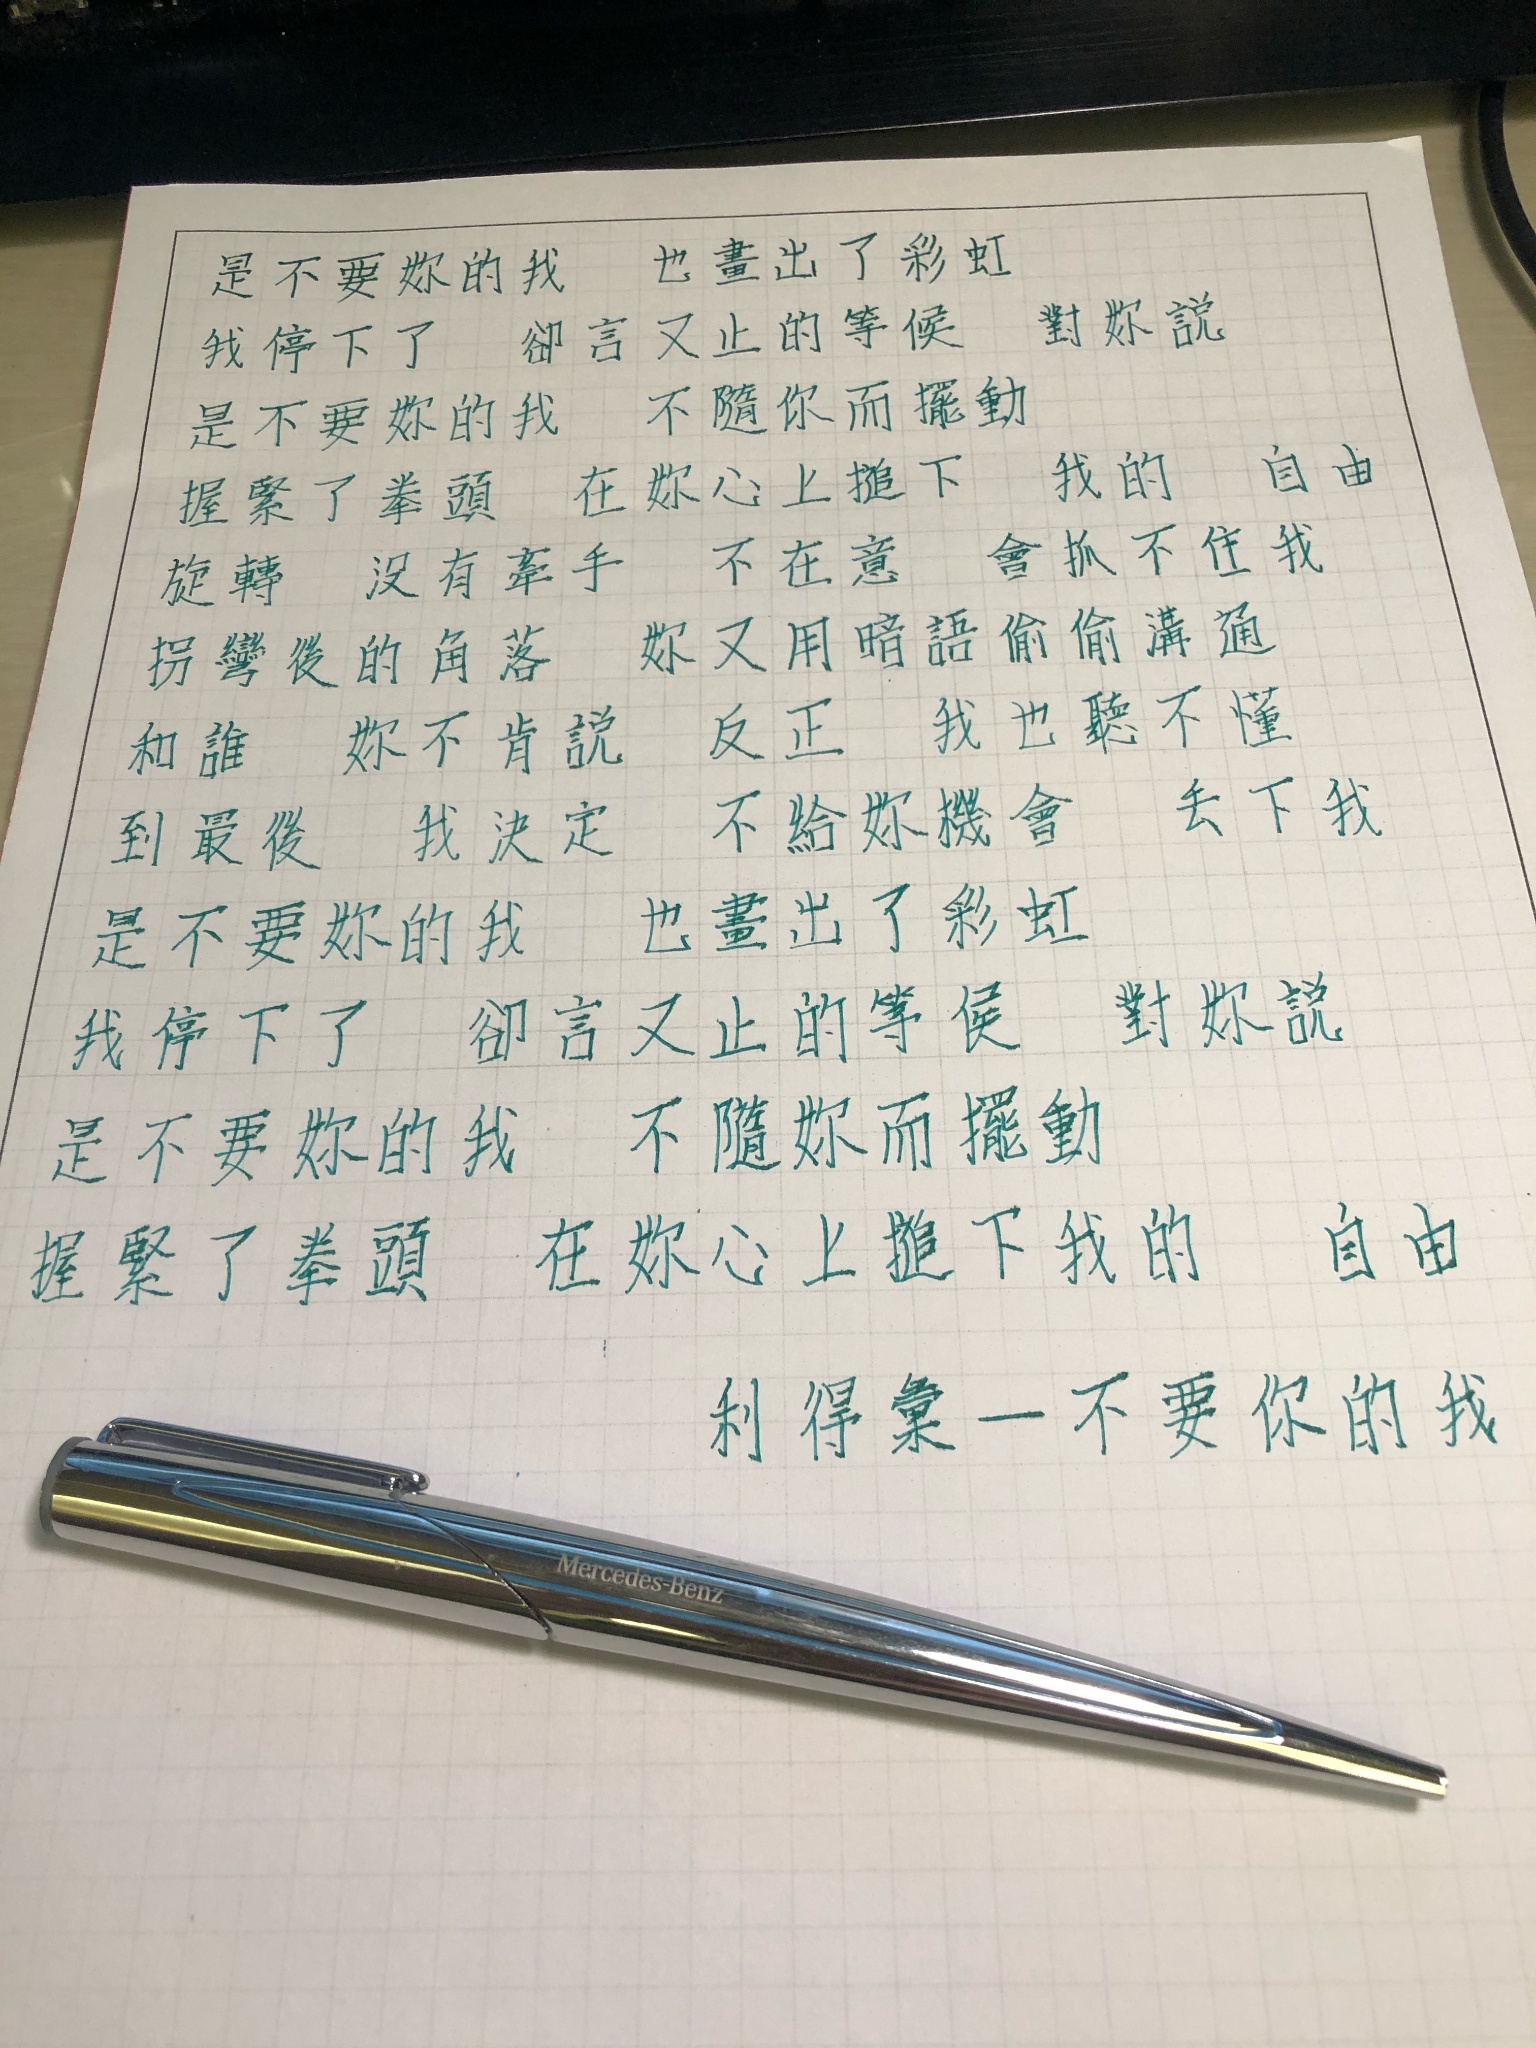 是不要妳的我　也畫出了彩虹
我停下了　卻言又止的等候　對妳説
是不要妳的我　不隨你而擺動
握緊了拳頭　在妳心上搥下　我的　自由
旋轉　没有牽手　不在意　會抓不住我
拐彎後的角落　妳又用暗語偷偷溝通
和誰　妳不肯説　反正　我也聽不懂
到最後　我決定　不給妳機會　丢下我
是不要妳的我　也畫出了彩虹
我停下了　卻言又止的等侯　對妳説
是不要妳的我　不隨妳而擺動
握緊了拳頭　在妳心上搥下我的　自由
利得彙一不要你的我
Mercedes-Benz